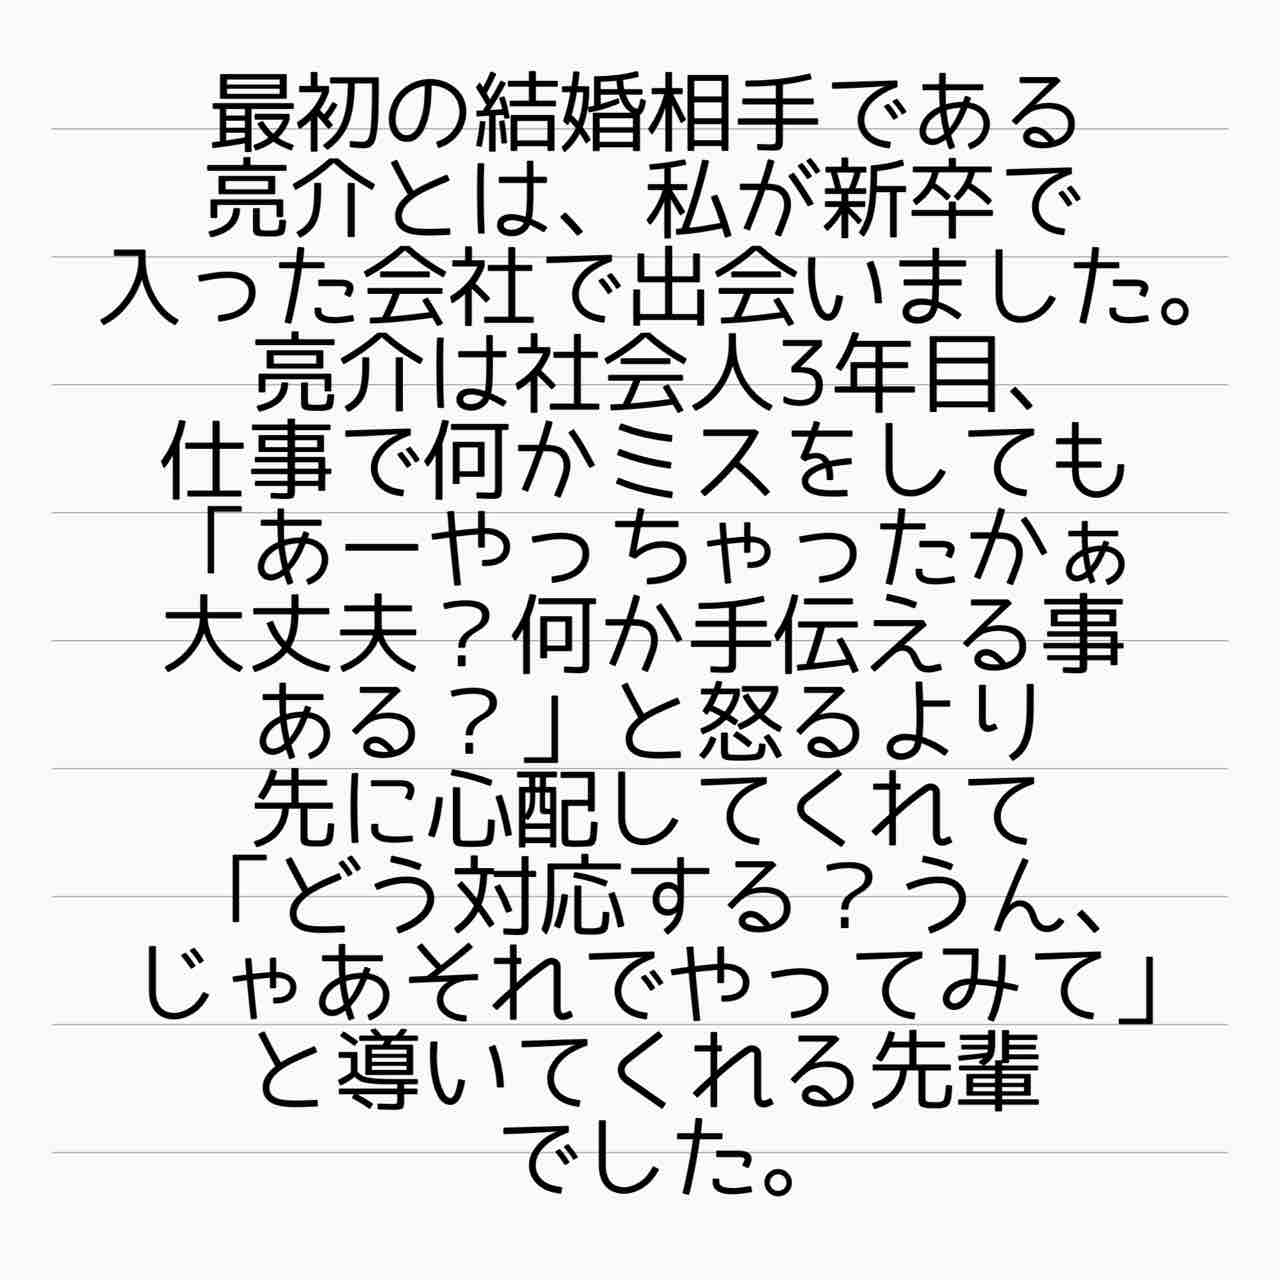 最初の結婚相手である
亮介とは、私が新卒で
入った会社で出会いました。
亮介は社会人3年目、
仕事で何かミスをしても
「あーやっちゃったかぁ
大丈夫？何か手伝える事
ある？」と怒るより
先に心配してくれて
「どう対応する？うん、
じゃあそれでやってみて」
と導いてくれる先輩
でした。